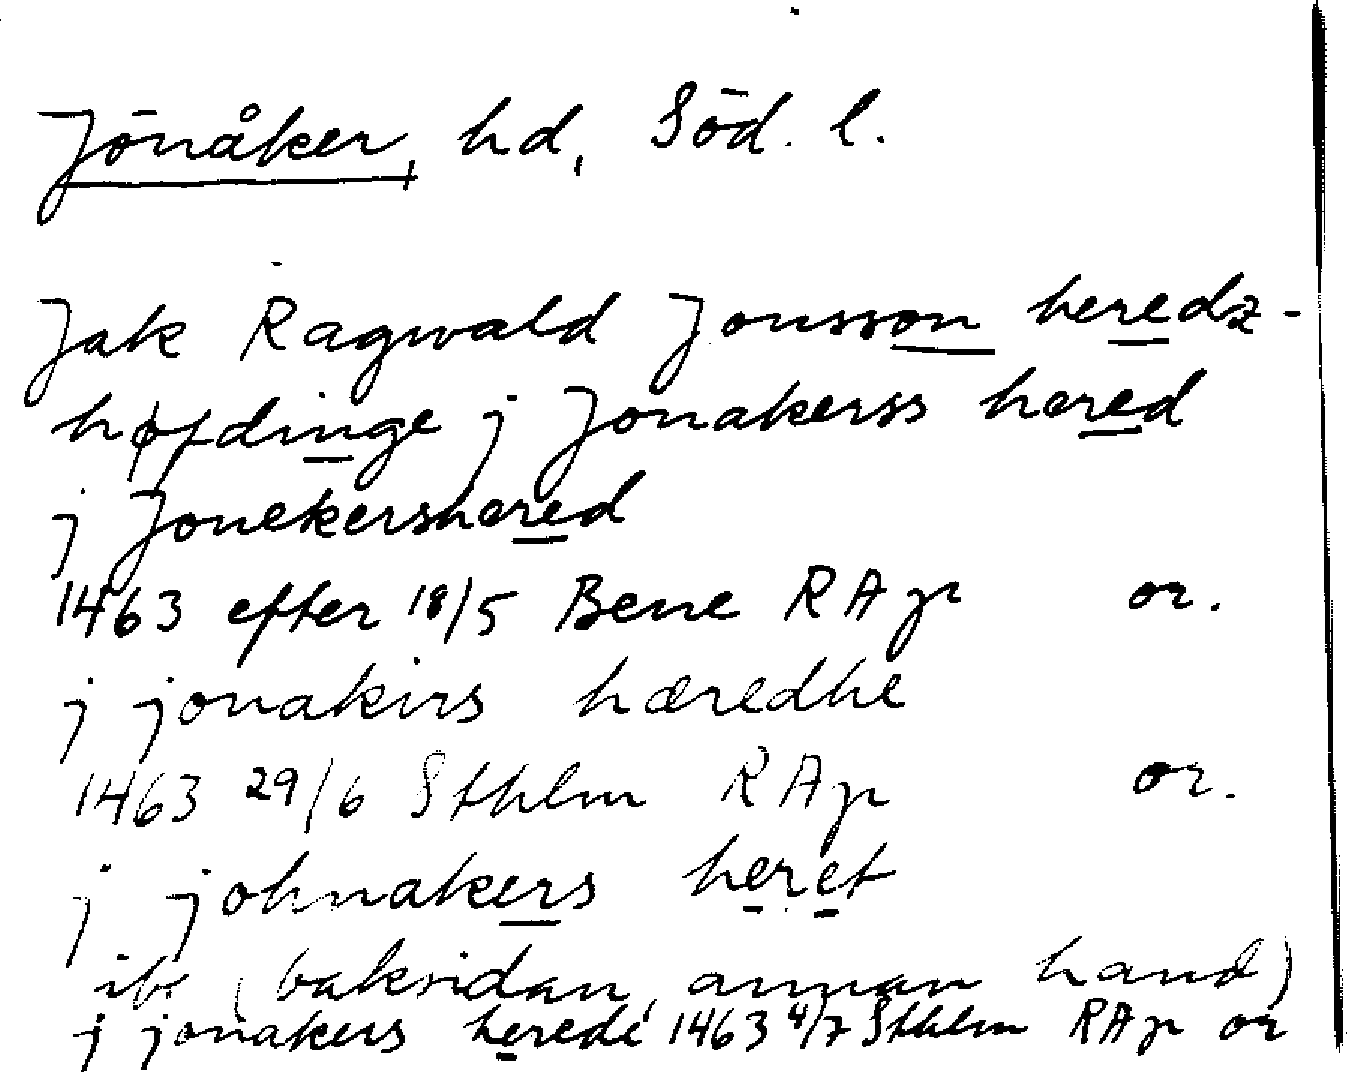 Jönåker, hd, Söd. l.
Jak Ragwald Jonsson heredz-
høfdinge j Jonakerss hered
j Jonekershered
1463 efter 18/5 Bene RAp or.
j jonakirs hæredhe
1463 29/6 Sthlm RAp or.
j johnakers heret
ibm (baksidan, annan hand)
j jonakers herede 1463 4/7 Sthlm RAp or